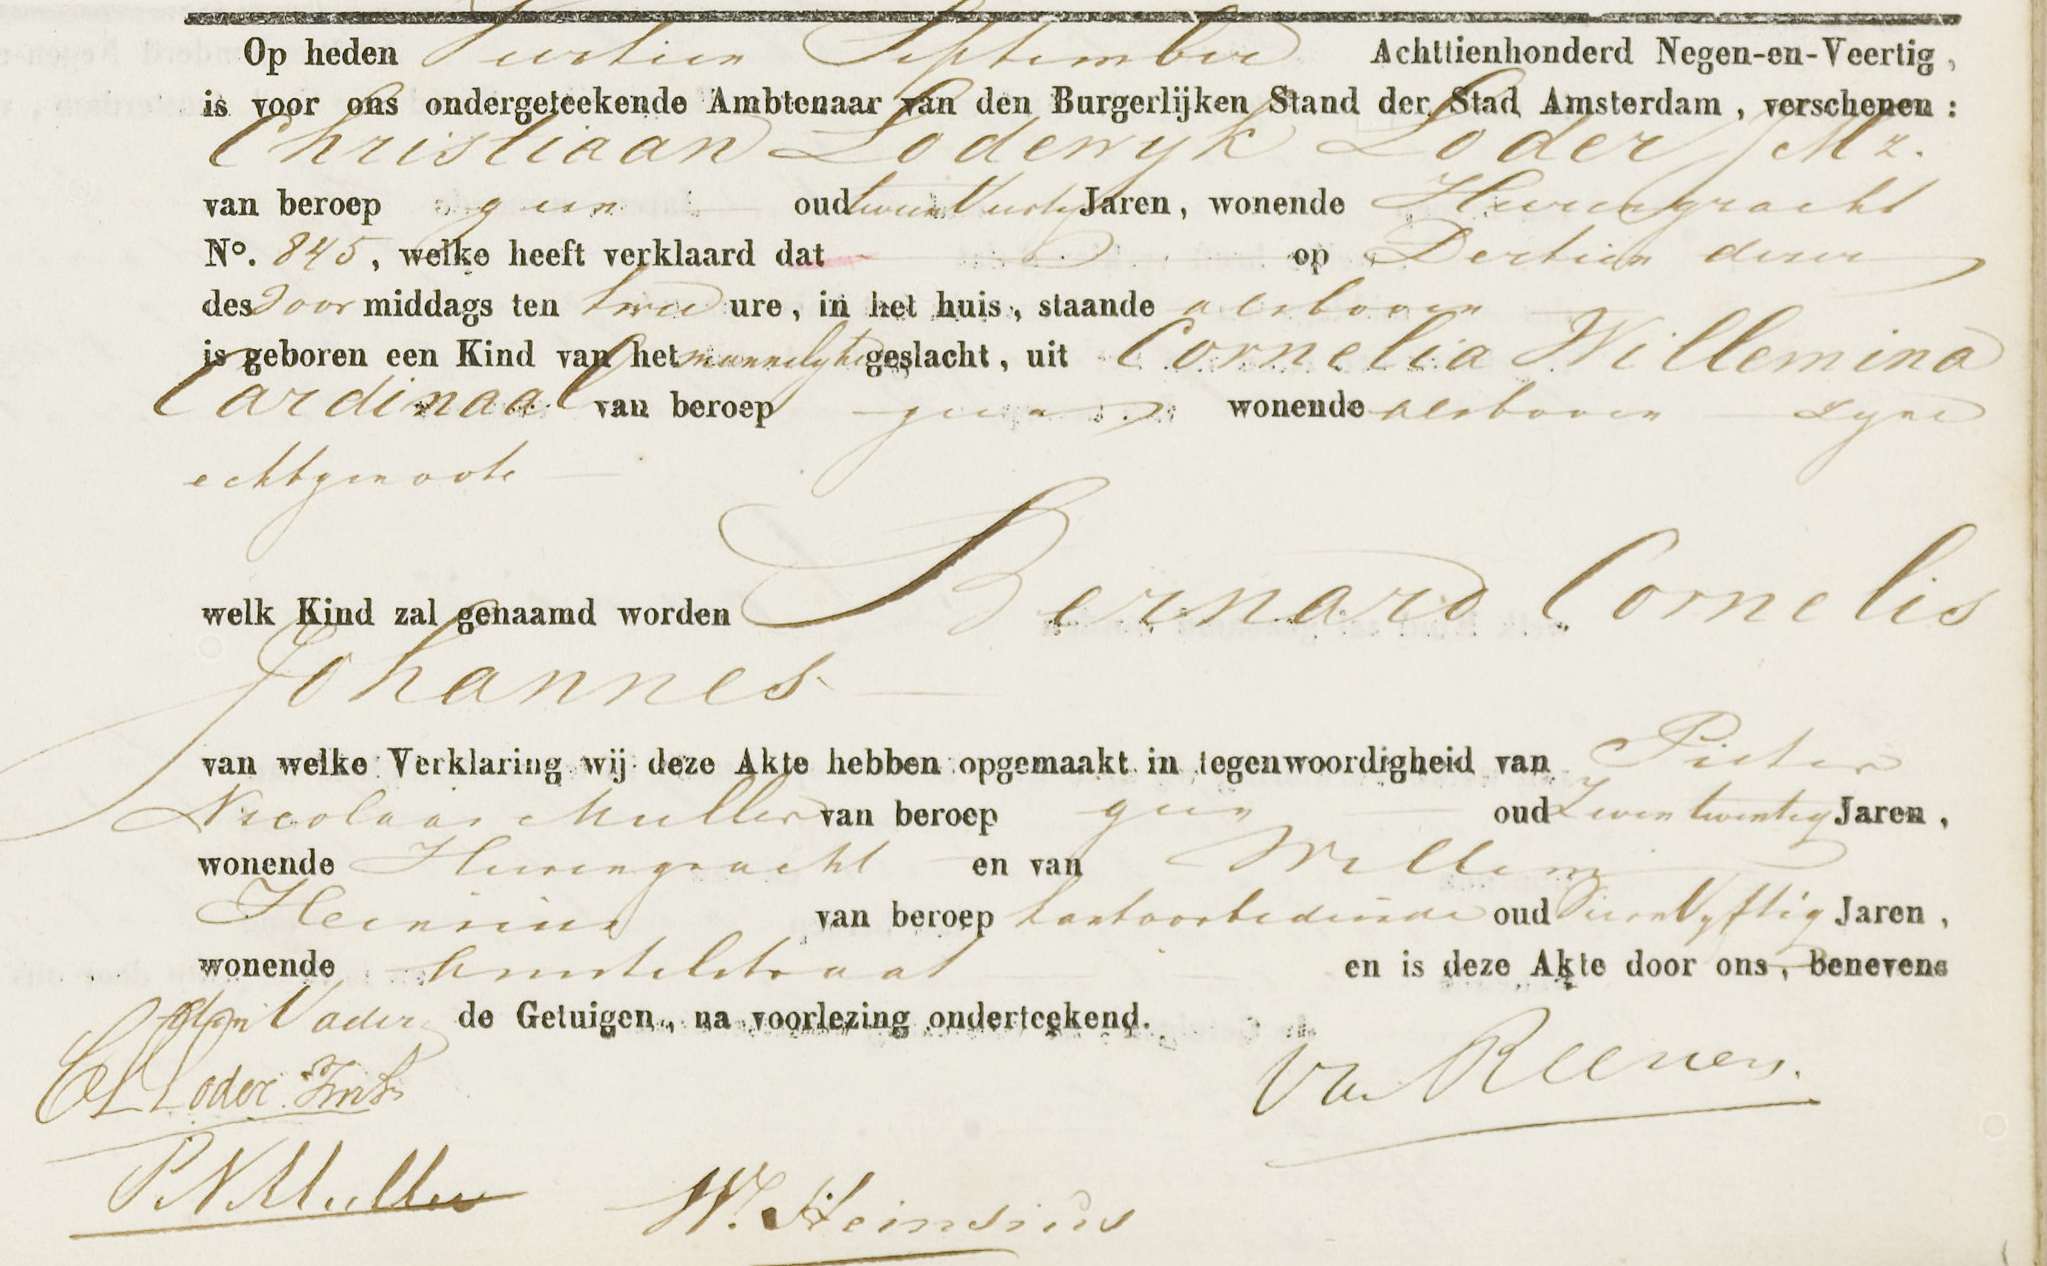 Op heden Veertien September Achttienhonderd Negen-en-Veertig,
is voor ons ondergeteekende Ambtenaar van den Burgerlijken Stand der Stad Amsterdam, verschenen:
Christiaan Lodewyk Loder, Mz.
van beroep geen oud Jaren, wonende Heerengracht
No. 845, welke heeft verklaard dat op Dertien dezer
des Voor middags ten twee ure, in het huis, staande alsboven
is geboren een Kind van het mannelyke geslacht, uit Cornelia Willemina
Cardinaal van beroep geen wonende alsboven zyne
echtgenoote
welk Kind zal genaamd worden Bernard Cornelis
Johannes
van welke Verklaring wij deze Akte hebben opgemaakt in tegenwoordigheid van Pieter
Nicolaas Muller van beroep geen oud Jaren,
wonende Heerengracht en van Willem
Heinsius van beroep kantoorbediende oud Jaren,
wonende Amstelstraat en is deze Akte door ons, benevens
den Vader de Getuigen, na voorlezing onderteekend.
C L Loder
Van Reenen.
P N Muller
W. Heinsius